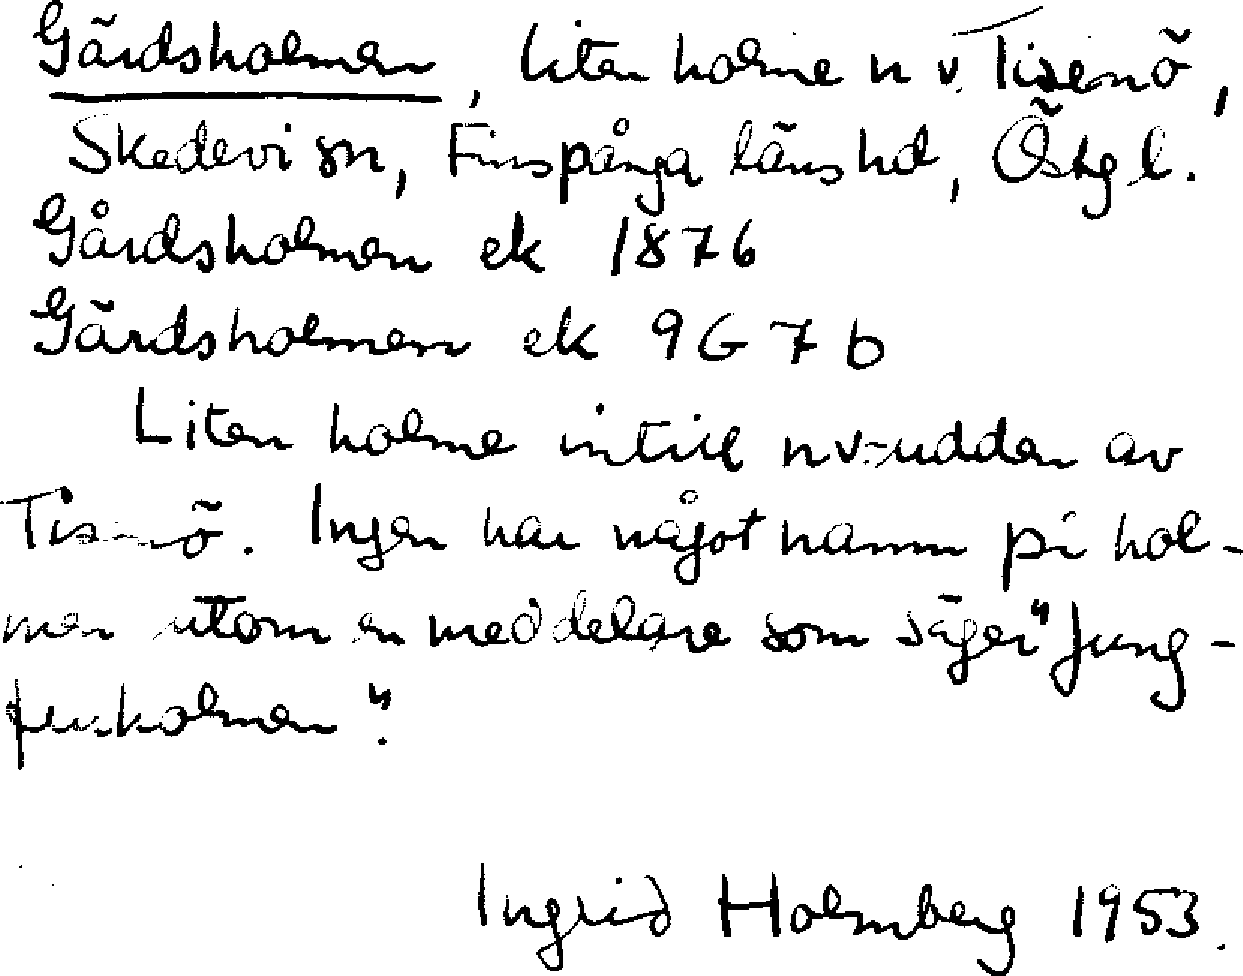 Gärdsholmen, liten holme n v. Tisenö,
Skedevi sn, Finspånga läns hd, Östgl.
Gårdsholmen ek 1876
Gärdsholmen ek 9G 7b
Liten holme intill nv-udden av
Tisenö. Ingen har något namn på hol-
men utom en meddelare som säger "Jung-
fruholmen".
Ingrid Holmberg 1953.